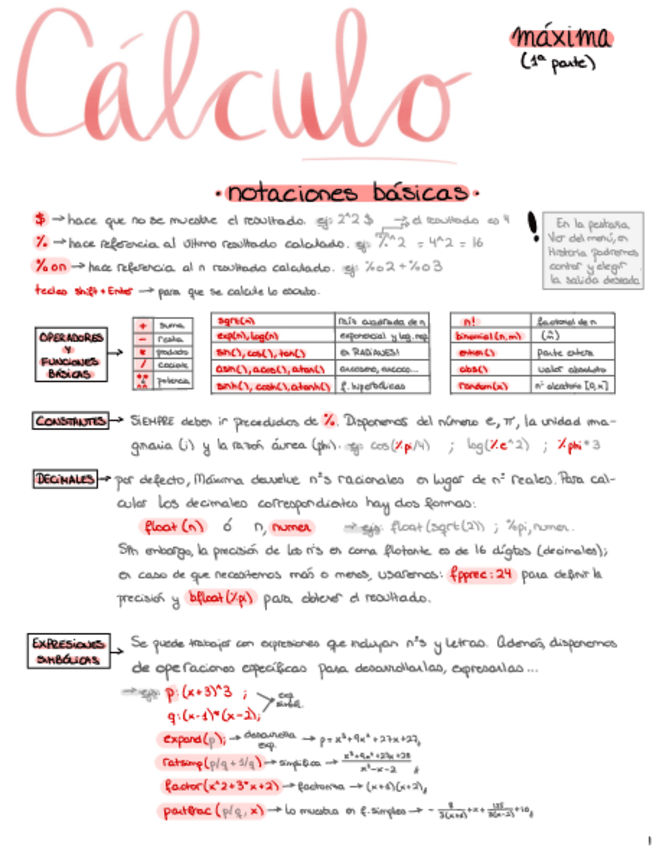 Cálculo
máxima
(1ª parte)
· notaciones básicas ·
$ → hace que no se muestre el resultado. ej: 2^2 $ → el resultado es 4
% → hace referencia al último resultado calculado. ej: %^2 = 4^2 = 16
%on → hace referencia al n resultado calculado. ej: %o2 + %o3
teclas Shift + Enter → para que se calcule lo escrito.
! En la pestaña
Ver del menú, en
Historia podremos
contar y elegir
la salida deseada
OPERADORES
Y
FUNCIONES
BÁSICAS
+ suma
- resta
* producto
/ cociente
potencia
sqrt(n) raíz cuadrada de n
exp(n), log(n) exponencial y log. nep.
sin(), cos(), tan() en RADIANES!
asin(), acos(), atan() arcoseno, arcocos...
sinh(), cosh(), atanh() f. hiperbólicas
n! factorial de n
binomial(n,m)
entier() parte entera
abs() valor absoluto
random(x) nº aleatorio [0,x]
CONSTANTES → SIEMPRE deben ir precedidos de %. Disponemos del número e, π, la unidad ima-
ginaria (i) y la razón áurea (phi). ej: cos(%pi/4) ; log(%e^2) ; %phi*3
DECIMALES → por defecto, Máxima devuelve nºs racionales en lugar de nº reales. Para cal-
cular los decimales correspondientes hay dos formas:
float(n) ó n, numer → ejs: float(sqrt(2)) ; %pi, numer.
Sin embargo, la precisión de los nºs en coma flotante es de 16 dígitos (decimales);
en caso de que necesitemos más o menos, usaremos: fpprec:24 para definir la
precisión y bfloat(%pi) para obtener el resultado.
EXPRESIONES
SIMBÓLICAS
→ Se puede trabajar con expresiones que incluyan nºs y letras. Además, disponemos
de operaciones específicas para desarrollarlas, expresarlas...
→ ejs: p:(x+3)^3 ; exp. simból.
q:(x-1)*(x-2);
expand(p); → desarrolla exp. → p = x³+9x²+27x+27
ratsimp(p/q + 1/q) → simplifica → x³+9x²+27x+28 / x²-x-2
factor(x^2+3*x+2) → factoriza → (x+1)(x+2)
partfrac(p/q, x) → lo muestra en f. simples →
1